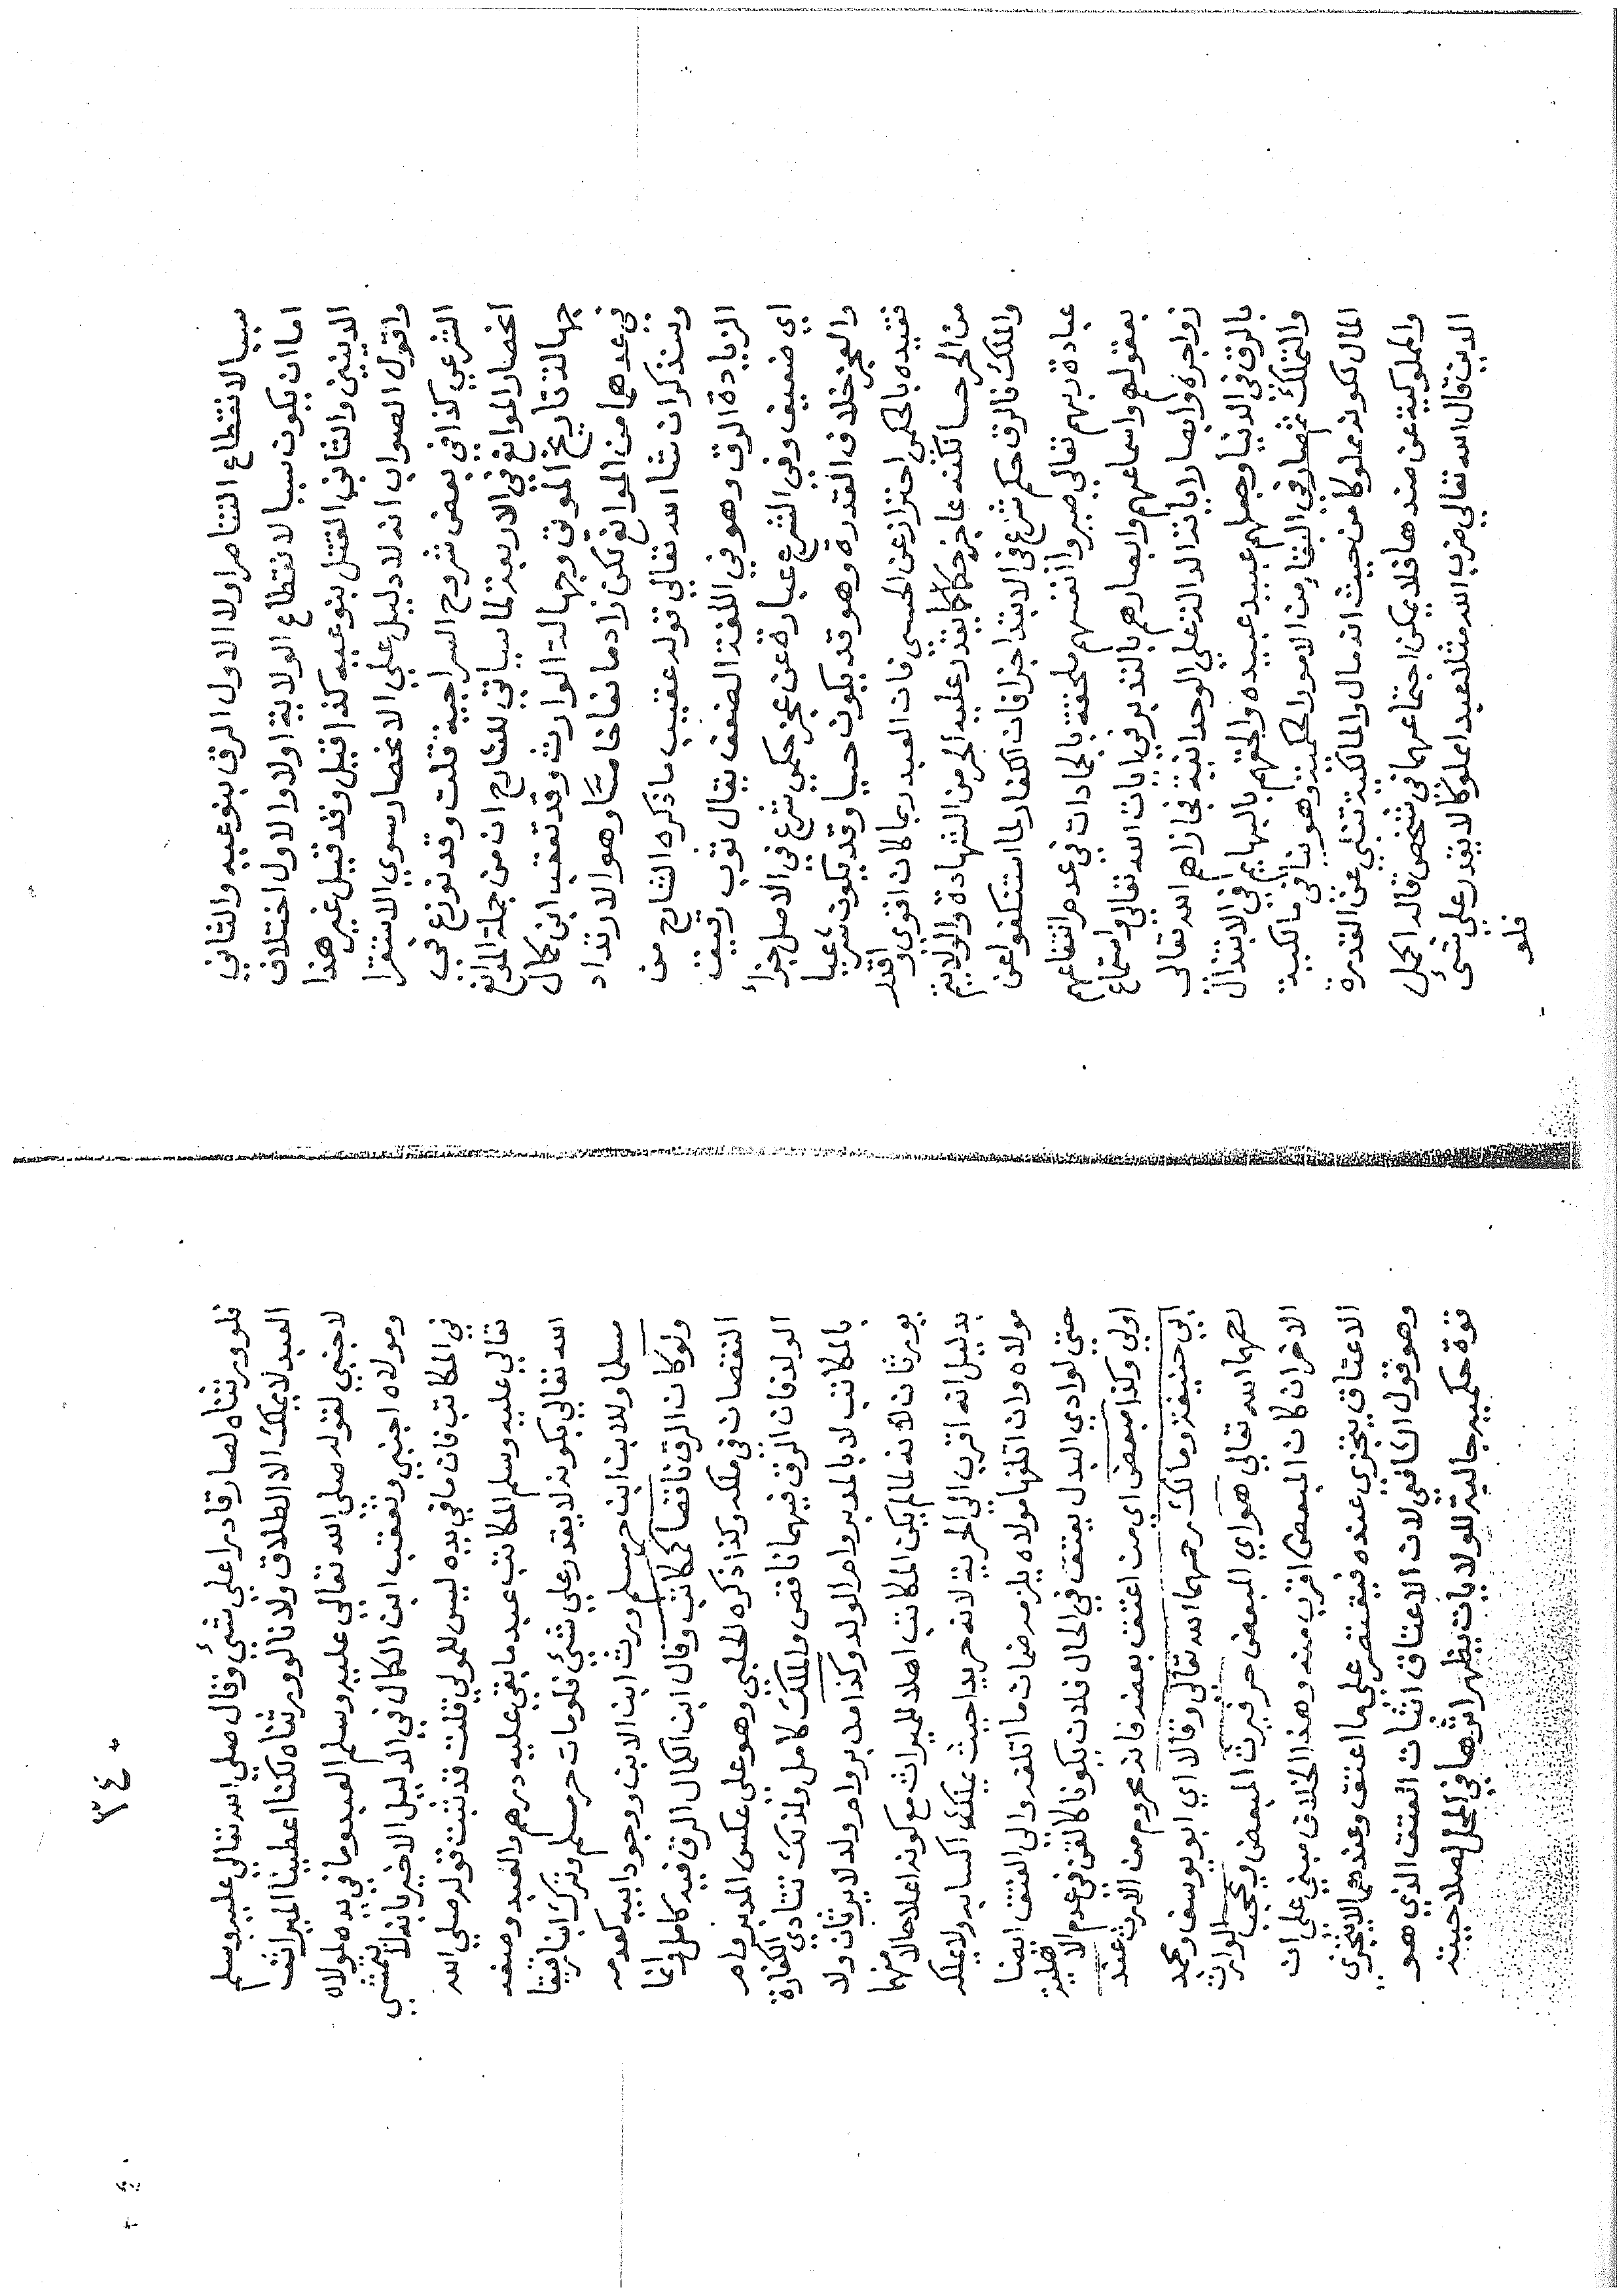 سببا لانقطاع التناصر اولا الاول الرق بنوعيه والثاني
اما ان يكون سببا لانقطاع الولاية اولا والاول اختلاف
الدينين والثاني القتل بنوعيه كذا قيل وقد قيل غير هذا
واقول الصواب انه لا دليل علي الانحصار سوي الاستقرا
الشرعي كذا في بعض شروح السراجية قلت وقد نوزع في
انحصار الموانع في الاربعة لما سياتي للشارح ان من جملة الموانع
جهالة تاريخ الموتي وجهالة الوارث وقد تعقب ابن كمال
في عدهما من الموانع لكن زاد مانعا خامسا وهو الارتداد
وسنذكر ان شا الله تعالي قوله عقيب ما ذكره الشارح من
الزيادة الرق وهو في اللغة الضعف يقال ثوب رقيق
اي ضعيف وفي الشرع عبارة عن عجز حكمي شرع في الاصل جزأ
والعجز خلاف القدرة وهو قد يكون حسيا وقد يكون شرعيا
فقيده بالحكمي احتراز عن الحسي فان العبد ربما كان اقوي واقدر
من الحر حسا لكنه عاجز حكما لا يقدر عليه الحر من الشهادة والولاية
والملك فالرق حكم شرع في الابتدا جزا فان الكفار لما استنكفوا عن
عبادة ربهم تعالي صيروا انفسهم ملحقة بالجمادات في عدم انتفاعهم
بعقولهم واسماعهم وابصارهم بالتدبر في ايات الله تعالي واستماع
زواجره وابصار اياته الدالة علي الوحدانية فجازاهم الله تعالي
بالرق في الدنيا وجعلهم عبيد عبيده والحقهم بالبهايم في الابتذال
والتملك ثم صار في البقا من الامور الحكمية وهو ينافي مالكية
المال لكونه مملوكا من حيث انه مال والمالكية تنبئ عن القدرة
والمملوكية عن ضدها فلا يمكن اجتماعهما في شخص قاله اكمل
الدين قال الله تعالي ضرب الله مثلا عبدا مملوكا لا يقدر علي شئ
فلو
٣٤٠
فلو ورثناه لصار قادرا علي شئ وقال صلي الله تعالي عليه وسلم
العبد لا يملك الا الطلاق ولانا لو ورثناه لكنا اعطينا الميراث
لاجنبي لقوله صلي الله تعالي عليه وسلم العبد وما في يده لمولاه
ومولاه اجنبي وتعقب ابن الكمال في الدليل الاخير بانه لا يتمشي
في المكاتب فان ما في يده ليس للمولي قلت قد ثبت قوله صلي الله
تعالي عليه وسلم المكاتب عبد ما بقي عليه درهم والعبد وصفه
الله تعالي بكونه لا يقدر علي شئ فلو مات حر مسلم وترك ابنا رقيقا
مسلما وللابن ابن حر مسلم ورث ابن الابن ووجود ابيه كعدمه
ولو كان الرق ناقصا كمكاتب وقال ابن الكمال الرق فيه كامل وانما
النقصان في ملكه وكذا ذكره الحلبي وهو علي عكس المدبر وام
الولد فان الرق فيهما ناقص والملك كامل ولذلك تتادي الكفارة
بالمكاتب لا بالمدبر وام الولد وكذا مدبر وام ولد لا يرثان ولا
يورثان لانه لما لم يكن المكاتب اهلا للميراث مع كونه اعلا حالا منهما
بدليل انه اقرب الي الحرية لانه حر يدا حيث يملك اكسابه ولا يملكه
مولاه وان اتلفها مولاه يلزمه ضمان ما اتلفه والي العتق ايضا
حتي لو ادي البدل يعتق في الحال فلان يكونا كالقن في عدم الاهلية
اولي وكذا مبعض اي من اعتق بعضه فانه محروم من الارث عند
ابي حنيفة ومالك رحمهما الله تعالي وقالا اي ابو يوسف ومحمد
رحمهما الله تعالي هو اي المبعض حر فيرث المبعض ويحجب الوارث
الاخر ان كان المبعض اقرب منه وهذا الخلاف مبني علي ان
الاعتاق يتجزي عنده فيقتصر علي ما اعتق وعندهما لا يتجزي
وهو قول الشافعي لان الاعتاق اثبات العتق الذي هو
قوة حكمية جالية للولايات يظهر اثرها في المحل لصلاحيته